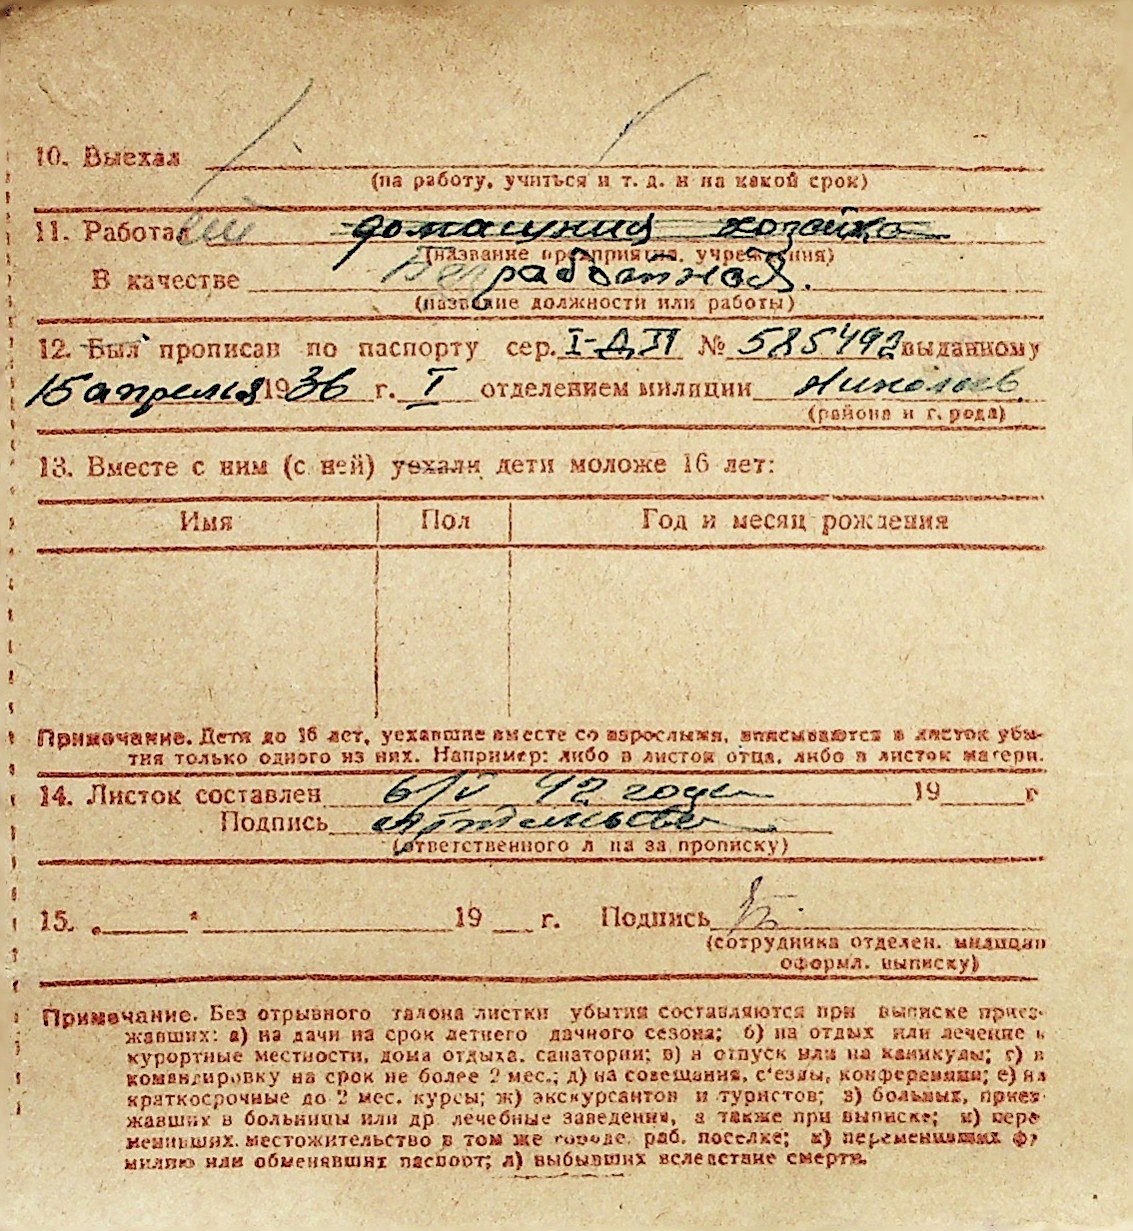 10. Выехал
(на работу, учиться и т. д. и на какой срок)
11. Работал домашняя хозяйка
(название предприятия, учреждения)
В качестве Безработная.
(название должности или работы)
12. Был прописан по паспорту сер. I-ДП № 585492 выданному
15 апреля 1936 г. I отделением милиции Николаев
(района и города)
13. Вместе с ним (с ней) уехали дети моложе 16 лет:
Имя Пол Год и месяц рождения
Примечание. Дети до 16 лет, уехавшие вместе со взрослыми, вписываются в листок убы-
тия только одного из них. Например: либо в листок отца, либо в листок матери.
14. Листок составлен 6/V 42 года 19 г
Подпись
(ответственного л ца за прописку)
15. „ " 19 г. Подпись
(сотрудника отделен. милиции
оформл. выписку)
Примечание. Без отрывного талона листки убытия составляются при выписке приез-
жавших: а) на дачи на срок летнего дачного сезона; б) на отдых или лечение в
курортные местности, дома отдыха, санатории; в) в отпуск или на каникулы; г) в
командировку на срок не более 2 мес.; д) на совещания, с'езды, конференции; е) на
краткосрочные до 2 мес. курсы; ж) экскурсантов и туристов; з) больных, приез-
жавших в больницы или др лечебные заведения, а также при выписке; и) пере-
менивших местожительство в том же городе, раб. поселке; к) переменивших фа-
милию или обменявших паспорт; л) выбывших вследствие смерти.